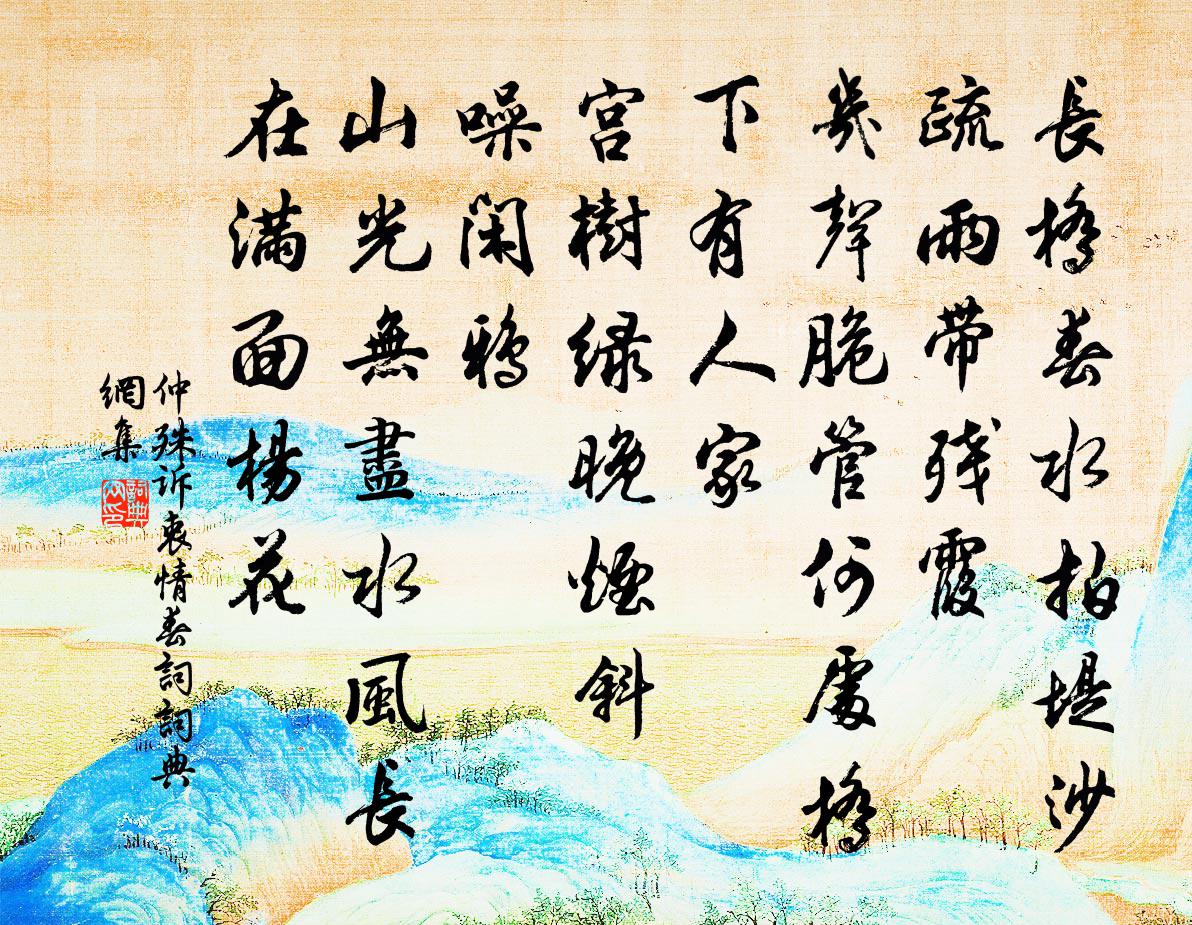 長橋春水拍堤沙
疏雨带残霞
幾聲脆管何處橋
下有人家
宮樹綠晚煙斜
噪閑鴉
山光無盡水風長
在滿面楊花
仲殊诉衷情春詞詞典
網集
詞典